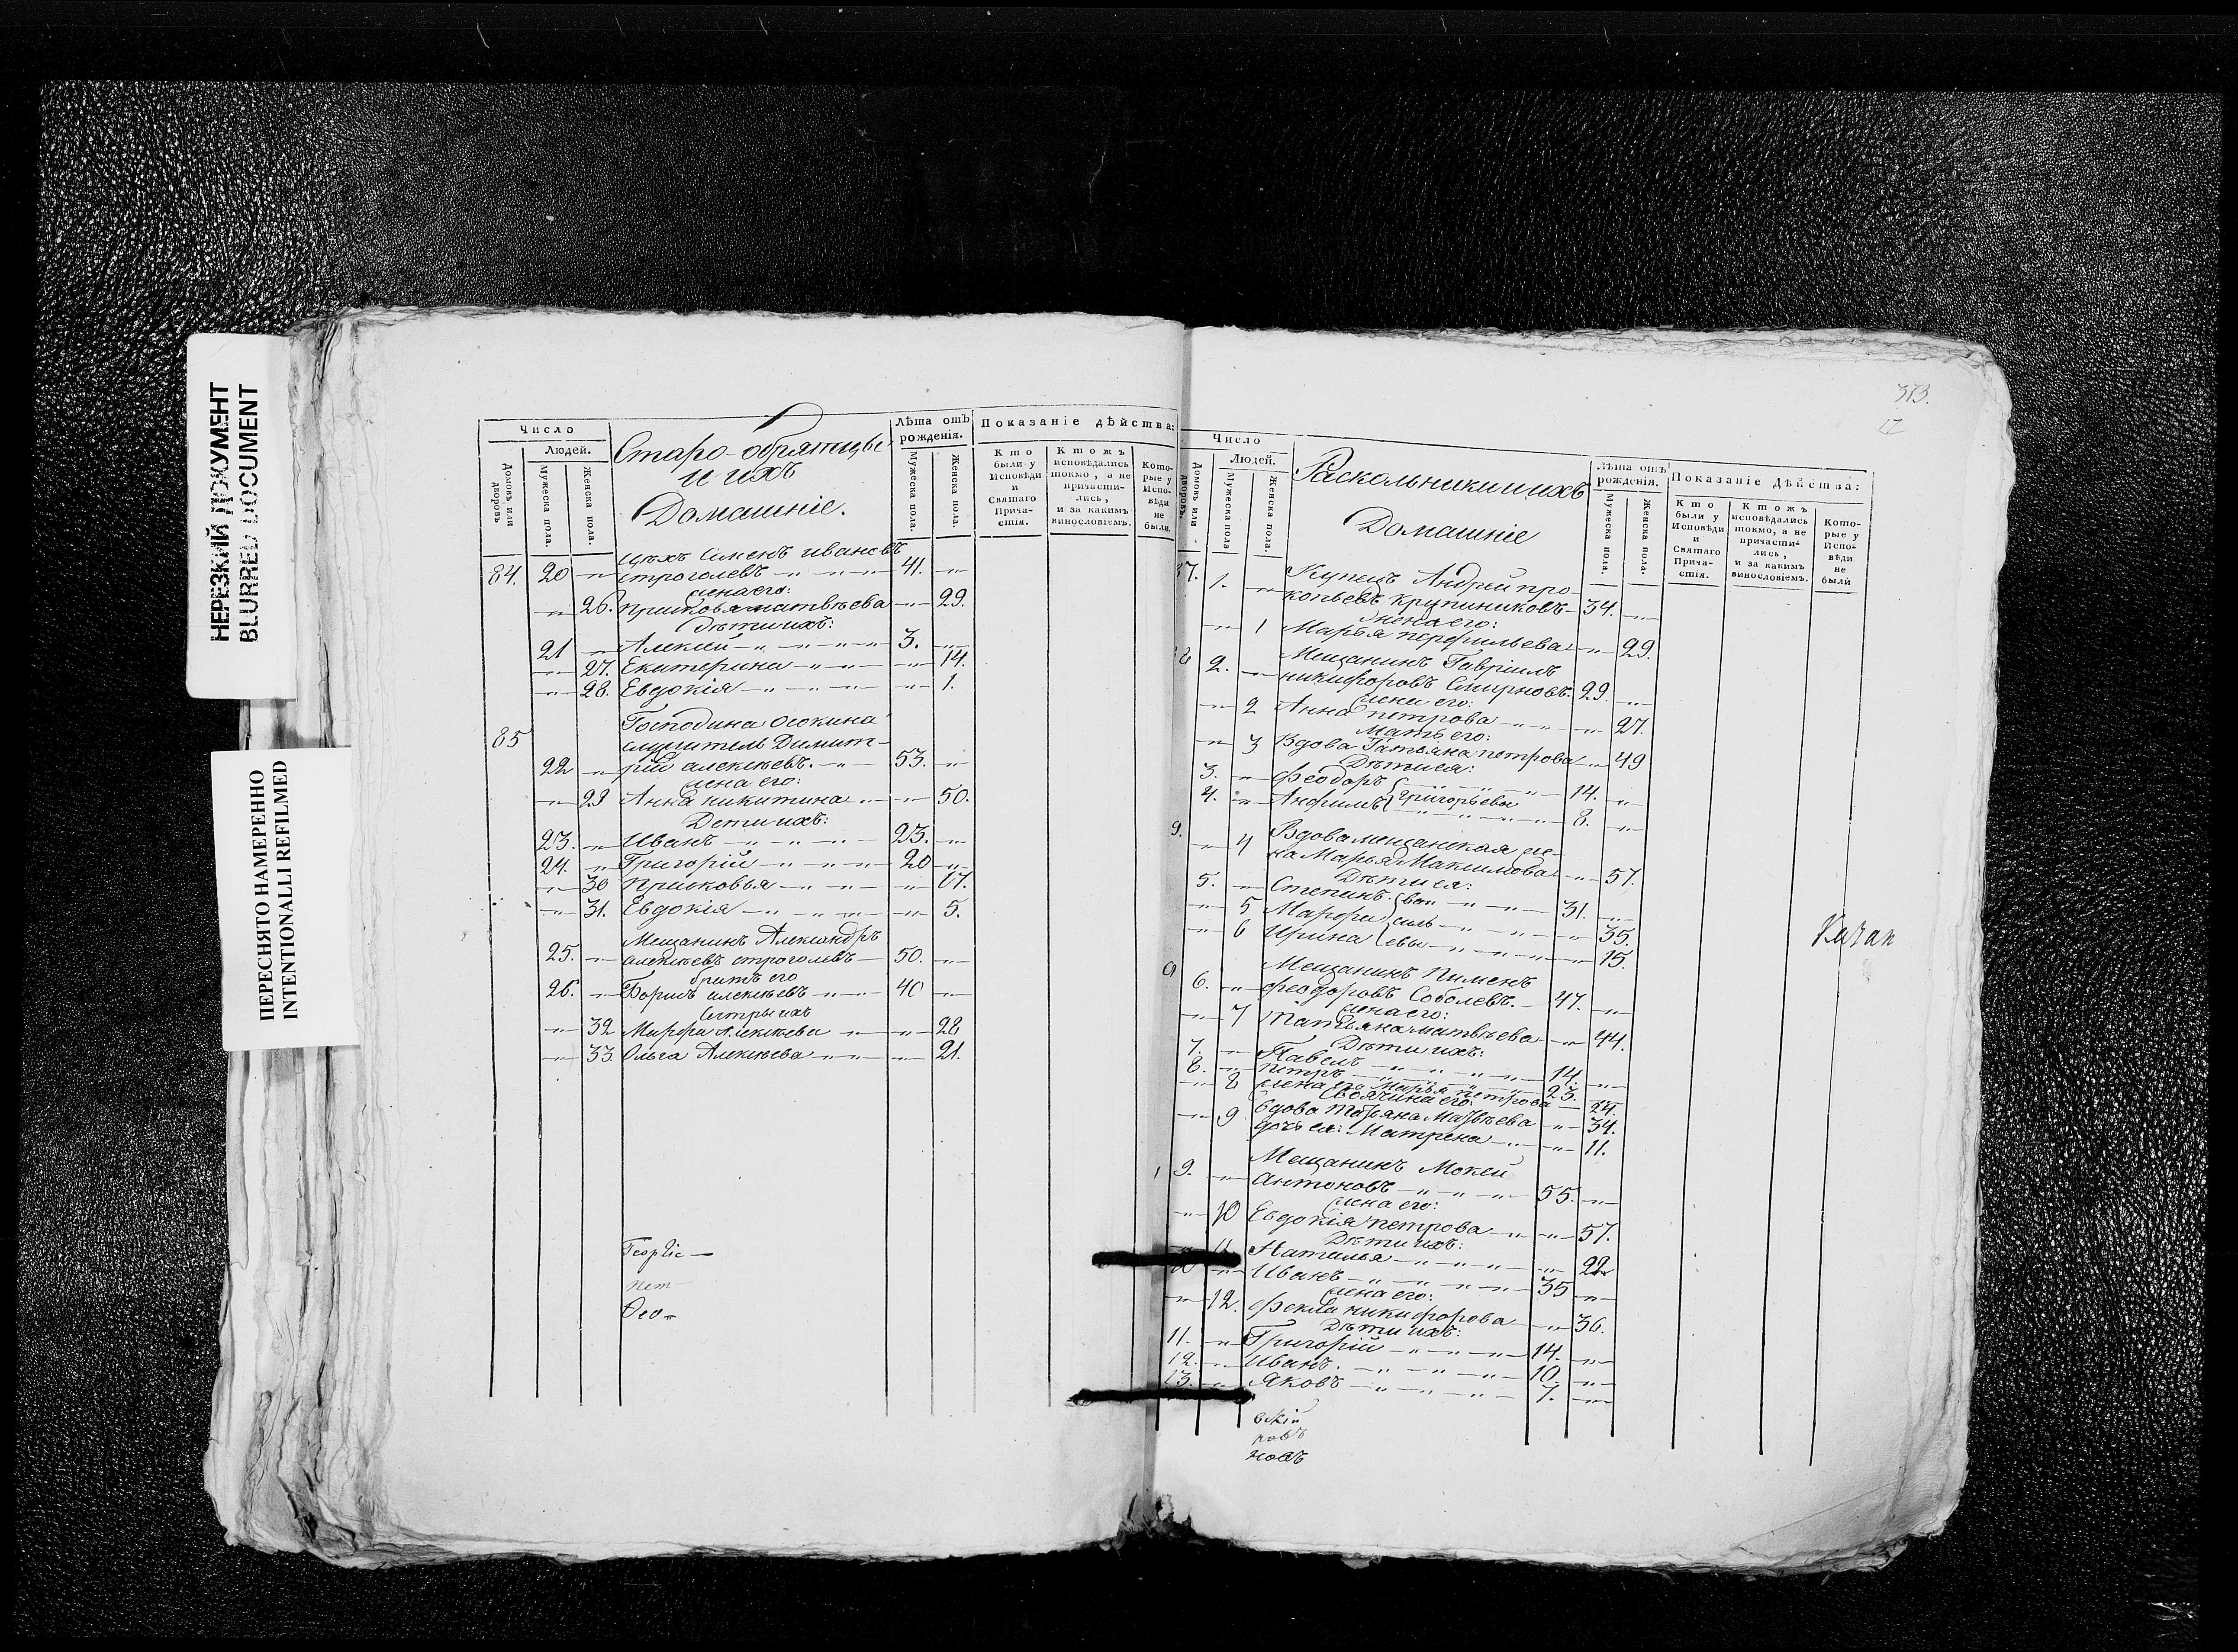 НЕРЕЗКИЙ ДОКУМЕНТ
BLURRED DOCUMENT
ПЕРЕСНЯТО НАМЕРЕННО
INTENTIONALLI REFILMED
Число
Людей.
Домовъ или дворовъ
Мужеска пола.
Женска пола.
Старо-обрятцы
и ихъ
Домашніе.
Лѣта отъ рожденія.
Мужеска пола.
Женска пола.
Показаніе дѣйства:
Кто были у Исповѣди и Святаго Прича-стія.
Ктожъ исповѣдались токмо, а не причасти-лись, и за какимъ винословіемъ.
Кото-рые у Испо-вѣди не были.
цѣхъ Семенъ Ивановъ
84. 20 строголевъ 41.
жена его:
26. Прасковья матвѣева 29.
Дѣти ихъ:
21 Алексѣй 3.
27. Екатерина 14.
28. Евдокія 1.
85 Господина Осокина
служитель Димит-
22 рій алексѣевъ. 53.
жена его:
29 Анна никитина 50.
Дети ихъ:
23. Иванъ 23.
24. Григорій 20
30 Прасковья 17.
31. Евдокія 5.
Мещанинъ Александръ
25. алексѣевъ строголевъ 50.
братъ его
26. Борисъ алексѣевъ 40
сестры ихъ
32 Марфа Алексѣева 28
33. Ольга Алексѣева 21.
Георгіе
Пет
Ѳео
373.
Число
Людей.
Домовъ или дворовъ.
Мужеска пола
Женска пола.
Раскольники и ихъ
Домашніе
Лѣта отъ рожденія.
Мужеска пола.
Женска пола.
Показаніе дѣйства:
Кто были у Исповѣди и Святаго Прича-стія.
Ктожъ исповѣдались токмо, а не причасти-лись, и за какимъ винословіемъ.
Кото-рые у Испо-вѣди не были
Купецъ Андрей про-
1. копьевъ Крупиниковъ 34.
жена его:
1 Марья перфильева 29.
Мещанинъ Гавріилъ
2. никифоровъ Смирновъ. 29.
жена его:
2 Анна петрова 27.
Мать его:
3 Вдова Татьяна петрова 49
Дѣти ея:
3. Феодоръ 14.
4. Анфимъ Григорьевы 8.
Вдова мещанская же-
4 на Марья Максимова 57.
Дѣти ея:
5. Степанъ ва 31.
5 Марфа силь 35.
6 Ирина евы 15.
Мещанинъ Пименъ
6. феодоровъ Соболевъ. 47.
жена его:
7 Татьяна матвѣева 44.
Дѣти ихъ:
7. Павелъ 14
8. Петръ 23.
8 жена его Марья петрова 24.
Своячина его:
9 вдова Татьяна Матвѣева 34.
дочь ея: Матрена 11.
Мещанинъ Мокей
9. Антоновъ 55.
жена его:
10 Евдокія петрова 57.
Дѣти ихъ:
11 Наталья 22
10 Иванъ 35
жена его:
12. Фекла никифорова 36.
Дѣти ихъ:
11. Григорій 14.
12. Иванъ. 10.
13. Яковъ 7.
вскій
ровъ
новъ